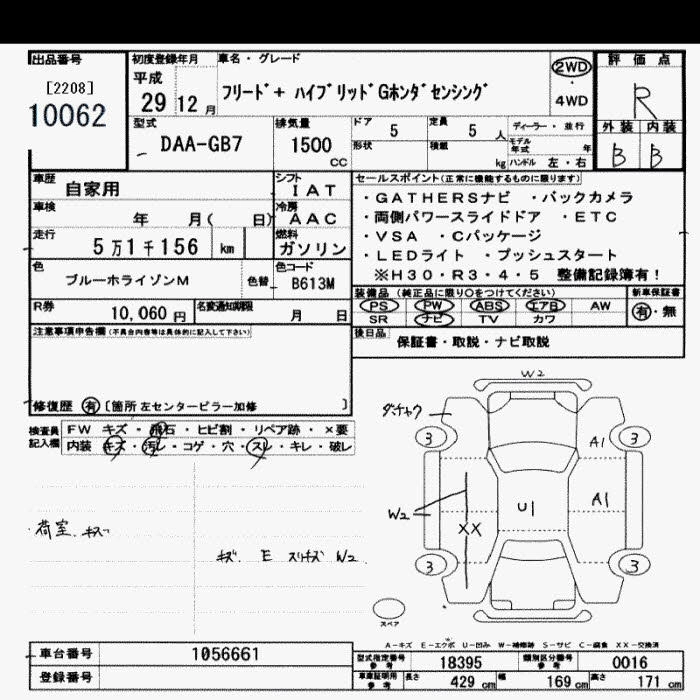 出品番号
[2208]
10062
初度登録年月
平成
29年12月
車名・グレード
フリード+ ハイブリッドGホンダセンシング
2WD
・
4WD
評価点
R
外装 内装
B B
型式
DAA-GB7
排気量
1500
CC
ドア 5
定員 5 人
形状
積載 kg
ディーラー・並行
モデル年式 年
ハンドル 左・右
車歴
自家用
シフト
IAT
車検
年 月( 日)
冷房
AAC
走行
5万1千156 km
燃料
ガソリン
色
ブルーホライゾンM
色替
色コード
B613M
R券
10,060 円
名変通知期限
月 日
セールスポイント(正常に機能するものに限ります)
・GATHERSナビ ・バックカメラ
・両側パワースライドドア ・ETC
・VSA ・Cパッケージ
・LEDライト ・プッシュスタート
※H30・R3・4・5 整備記録簿有!
装備品(純正品に限り○をつけてください)
PS PW ABS エアB AW
SR ナビ TV カワ
新車保証書
有・無
後日品
保証書・取説・ナビ取説
注意事項申告欄(不具合内容等は具体的に記入して下さい)
修復歴 有 〔箇所 左センターピラー加修 〕
検査員記入欄
FW キズ・飛石・ヒビ割・リペア跡・×要
内装 キズ・汚レ・コゲ・穴・スレ・キレ・破レ
荷室 キズ
キズ E スリキズ W2
W2
3 3
A1
W2
U1
A1
XX
3 3
スペア
A-キズ E-エクボ U-凹み W-補修跡 S-サビ C-腐食 XX-交換済
車台番号
1056661
登録番号
型式指定番号
参考
18395
類別区分番号
参考
0016
車庫証明用
参考
長さ 429 cm
幅 169 cm
高さ 171 cm